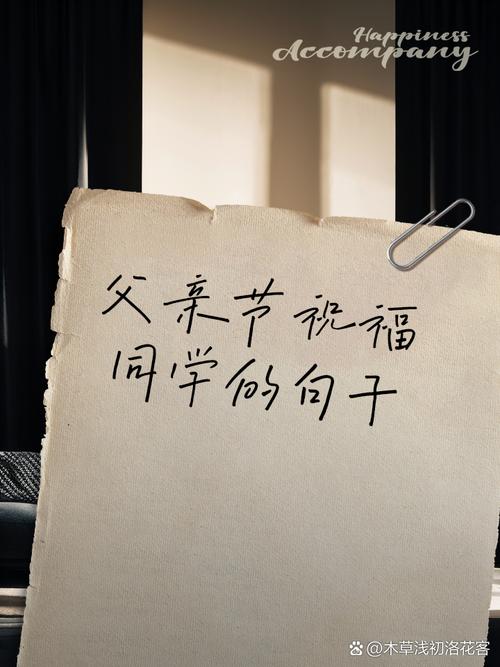 Happiness
Accompany
父亲节祝福
同学的句子
@木草浅初洛花客